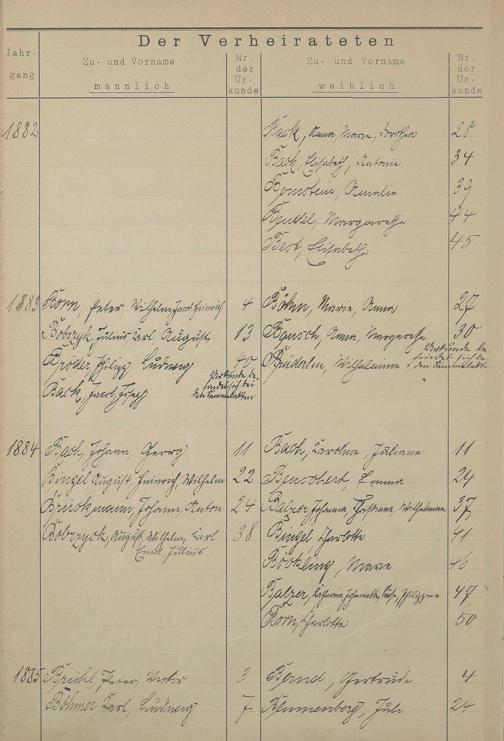 Der Verheirateten
Jahr-
gang
Zu- und Vorname
männlich
Nr.
der
Ur-
kunde
Zu- und Vorname
weiblich
Nr.
der
Ur-
kunde
1882
Back, Anna Marie, Dorothea 28
Bach, Elisabeth, Antonie 34
Bornstein, Amalie 39
Bendel, Margarethe 44
Best, Elisabethe 45
1883 Born, Peter Wilhelm Jacob Heinrich 4 Böhm, Marie, Anna 27
Bobzyk, Julius Carl August 13 Anna, Margarethe 30
Bröder, Philipp Ludwig 40 Wilhelmine
Back, Jacob Joseph
1884 Bach, Johann Georg 11 Bach, Karoline Juliane 11
Bingel August Heinrich, Wilhelm 22 Emma 24
Brückmann, Johann, Anton 24 Balzer Johanna, Christiane, Wilhelmine 37
August Wilhelm, Carl 38 Bingel Charlotte 41
Emil Julius
Böckling, Marie 46
Balzer, Katharina Johannette, Luise, Philippine 47
Born, Charlotte 50
1885 Brühl, Peter, Victor 3 Bernd, Gertrude 4
Böhmer, Carl, Ludwig 7 Blumenberg, Julie 24